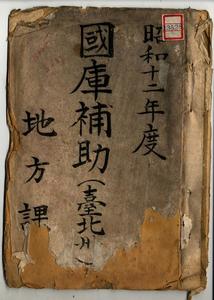 昭和十二年度
國庫補助（臺北州）
地方課